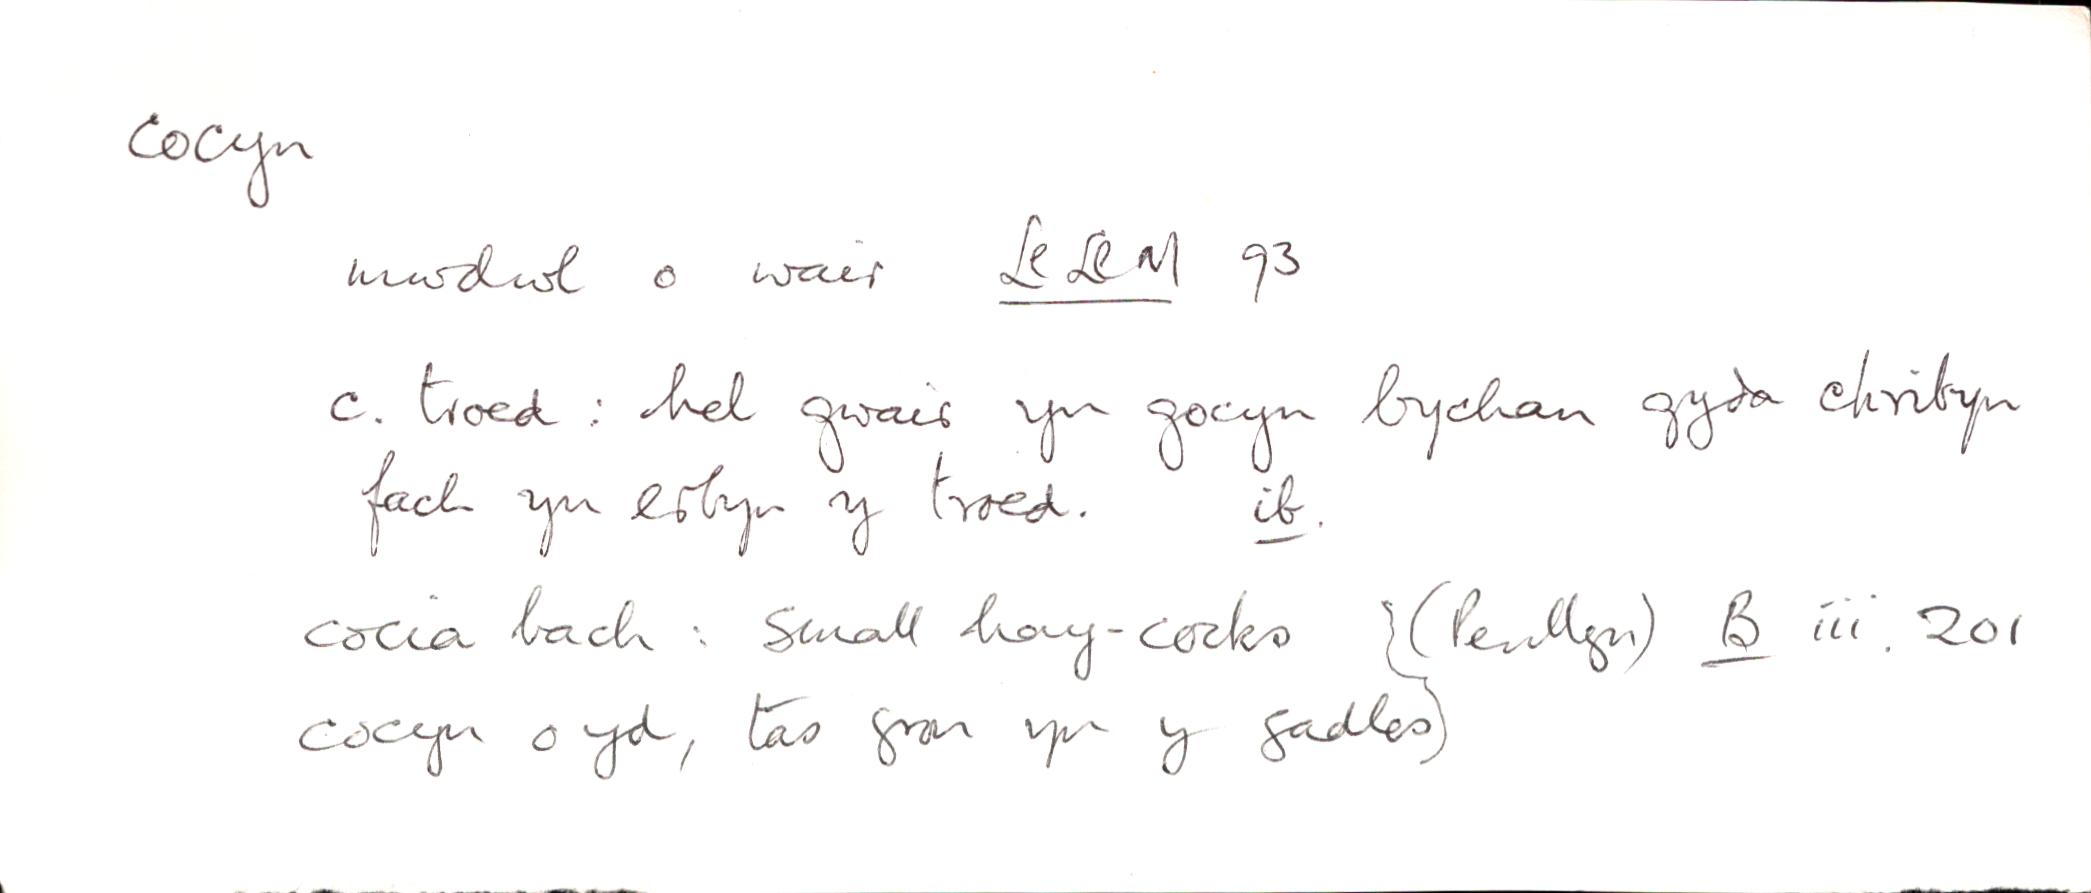 cocyn
mwdwl o wair LlLlM 93
c. troed : hel gwair yn gocyn bychan gyda chribyn
fach yn erbyn y troed. ib.
cocia bach : small hay-cocks } (Penllyn) B iii. 201
cocyn o yd, tas gron yn y gadles }